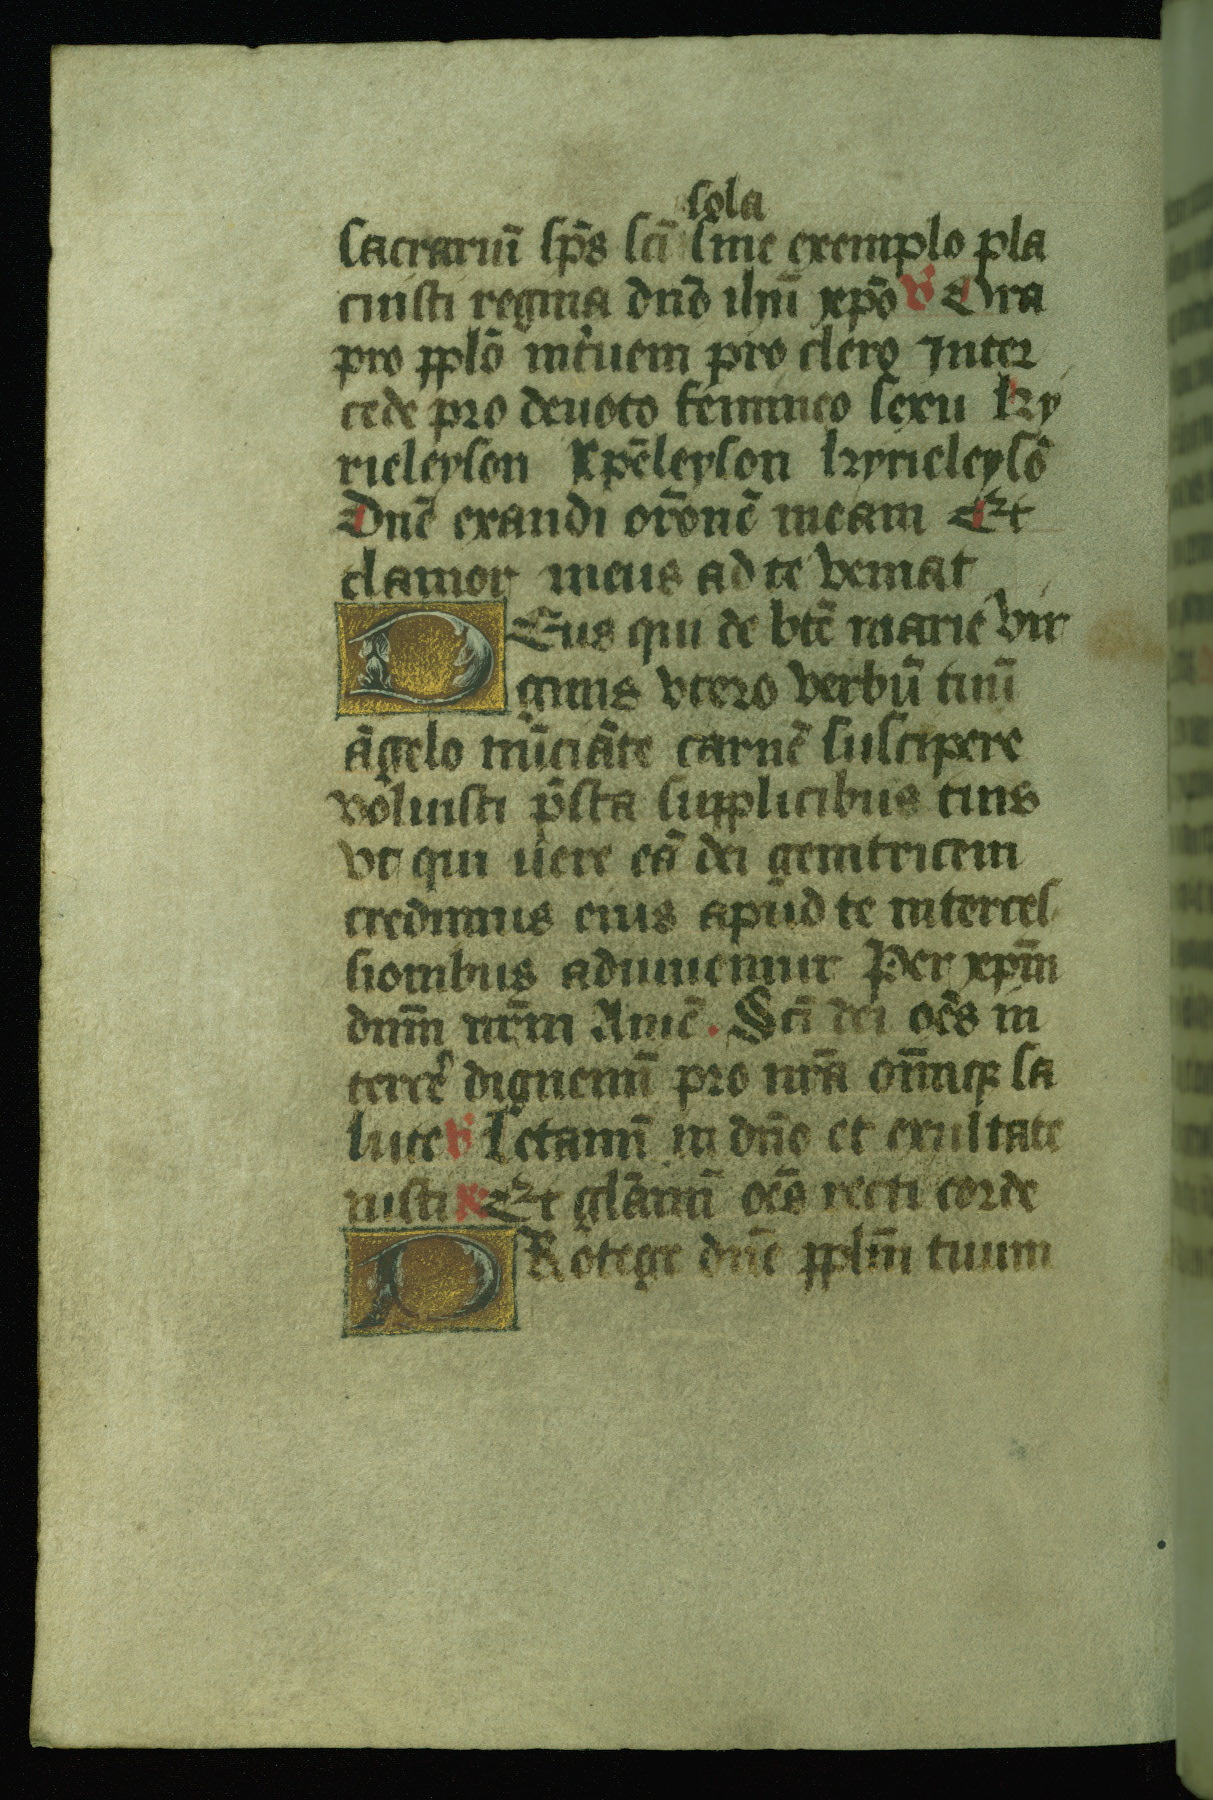 sola
sacrariū sp̄s scī sine exemplo pla
cuisti regina dn̄o ih̄u xp̄o ℣ Ora
pro pplō int̄uem pro clero Inter
cede pro deuoto femineo sexu ky
rieleyson Xp̄eleyson kyrieleysō
Dn̄e exaudi or̄onē meam Et
clamor meus ad te veniat
DEus qui de btē marie vir
ginis vtero verbū tuū
āgelo nūciāte carnē suscipere
voluisti p̄sta supplicibus tuis
vt qui uere eā dei genitricem
credimus eius apud te interces
sionibus adiuuemur Per xp̄m
dn̄m nr̄m Amē. Scī dei oēs in
tercē dignemī pro nr̄a om̄iqꝫ sa
lute ℣ Letamī in dn̄o et exultate
iusti ℟ Et gl̄amī oēs recti corde
PRotege dn̄e pplm̄ tuum